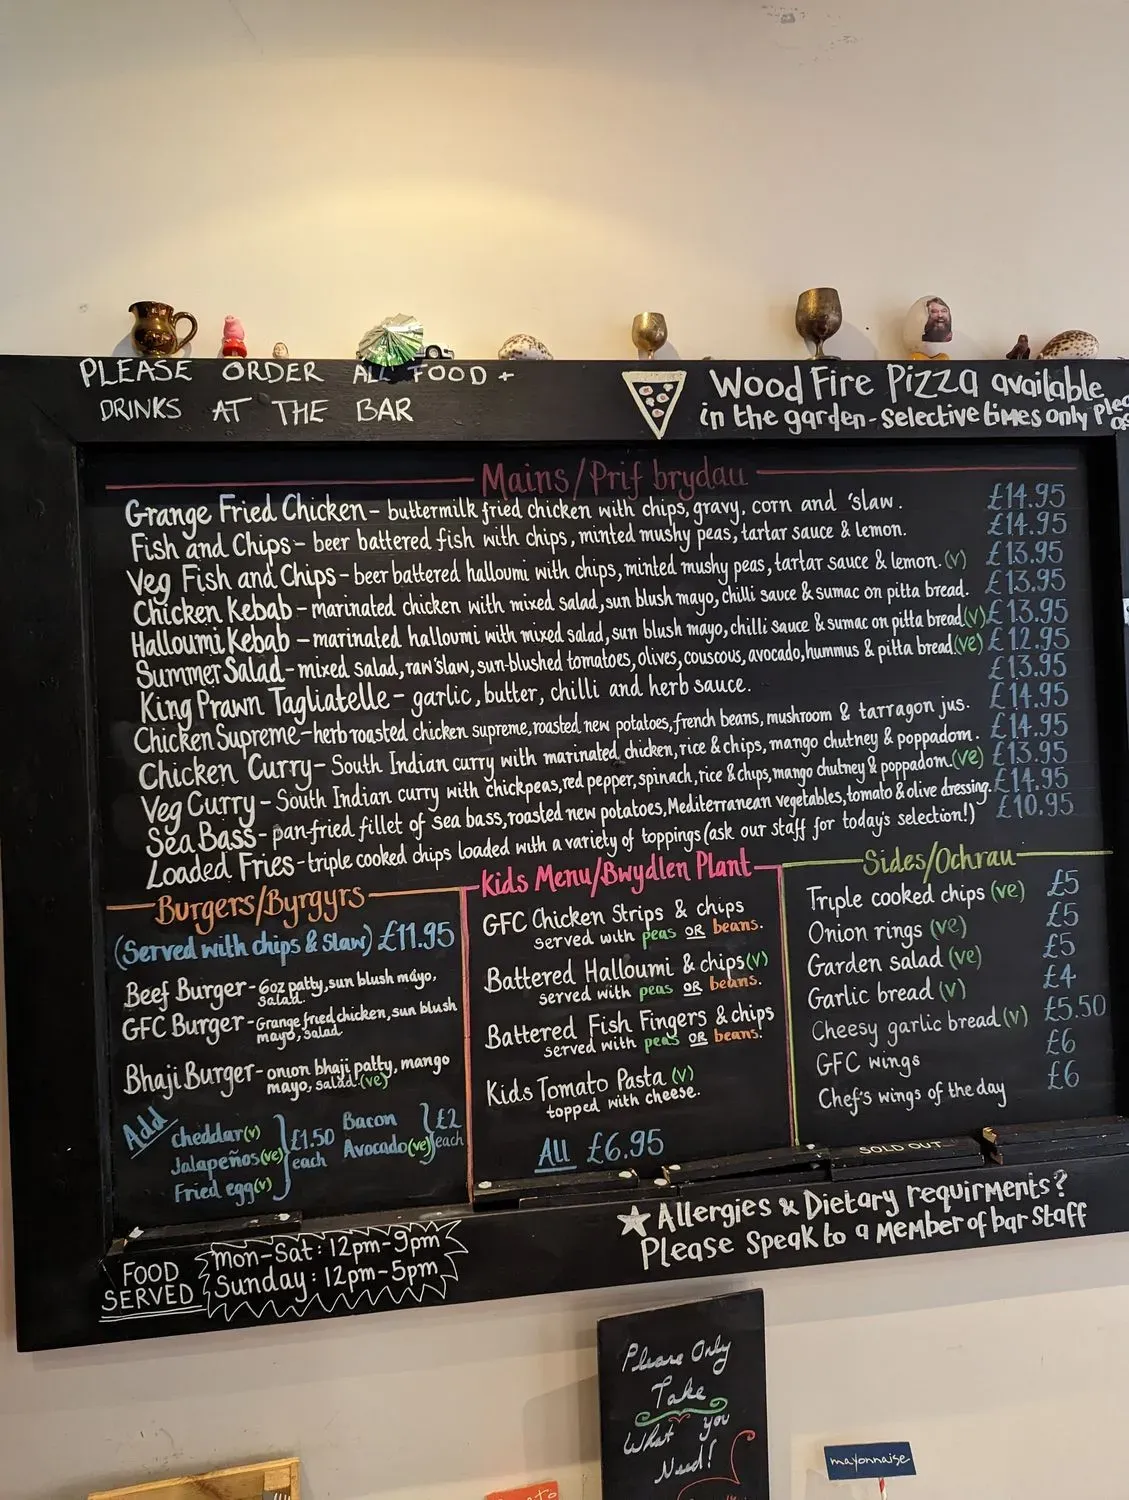 PLEASE ORDER ALL FOOD +
DRINKS AT THE BAR
Wood Fire Pizza available
in the garden - selective times only
Mains/Prif brydau
Grange Fried Chicken - buttermilk fried chicken with chips, gravy, corn and 'slaw. £14.95
Fish and Chips - beer battered fish with chips, minted mushy peas, tartar sauce & lemon. £14.95
Veg Fish and Chips - beer battered halloumi with chips, minted mushy peas, tartar sauce & lemon. (v) £13.95
Chicken Kebab - marinated chicken with mixed salad, sun blush mayo, chilli sauce & sumac on pitta bread. £13.95
Halloumi Kebab - marinated halloumi with mixed salad, sun blush mayo, chilli sauce & sumac on pitta bread (v) £13.95
Summer Salad - mixed salad, raw 'slaw, sun-blushed tomatoes, olives, couscous, avocado, hummus & pitta bread (ve) £12.95
King Prawn Tagliatelle - garlic, butter, chilli and herb sauce. £13.95
Chicken Supreme - herb roasted chicken supreme, roasted new potatoes, french beans, mushroom & tarragon jus. £14.95
Chicken Curry - South Indian curry with marinated chicken, rice & chips, mango chutney & poppadom. £14.95
Veg Curry - South Indian curry with chickpeas, red pepper, spinach, rice & chips, mango chutney & poppadom. (ve) £13.95
Sea Bass - pan-fried fillet of sea bass, roasted new potatoes, Mediterranean vegetables, tomato & olive dressing. £14.95
Loaded Fries - triple cooked chips loaded with a variety of toppings (ask our staff for today's selection!) £10.95
Burgers/Byrgyrs
(Served with chips & slaw) £11.95
Beef Burger - 6oz patty, sun blush mayo,
salad.
GFC Burger - Grange fried chicken, sun blush
mayo, salad
Bhaji Burger - onion bhaji patty, mango
mayo, salad. (ve)
Add
cheddar (v)
Jalapeños (ve)
Fried egg (v)
£1.50
each
Bacon
Avocado (ve)
£2
each
Kids Menu/Bwydlen Plant
GFC Chicken Strips & chips
served with peas OR beans.
Battered Halloumi & chips (v)
served with peas OR beans.
Battered Fish Fingers & chips
served with peas OR beans.
Kids Tomato Pasta (v)
topped with cheese.
All £6.95
Sides/Ochrau
Triple cooked chips (ve) £5
Onion rings (ve) £5
Garden salad (ve) £5
Garlic bread (v) £4
Cheesy garlic bread (v) £5.50
GFC wings £6
Chef's wings of the day £6
SOLD OUT
FOOD
SERVED
Mon-Sat: 12pm-9pm
Sunday: 12pm-5pm
Allergies & Dietary requirments?
Please Speak to a Member of bar Staff
Please Only
Take
What you
Need!
mayonnaise